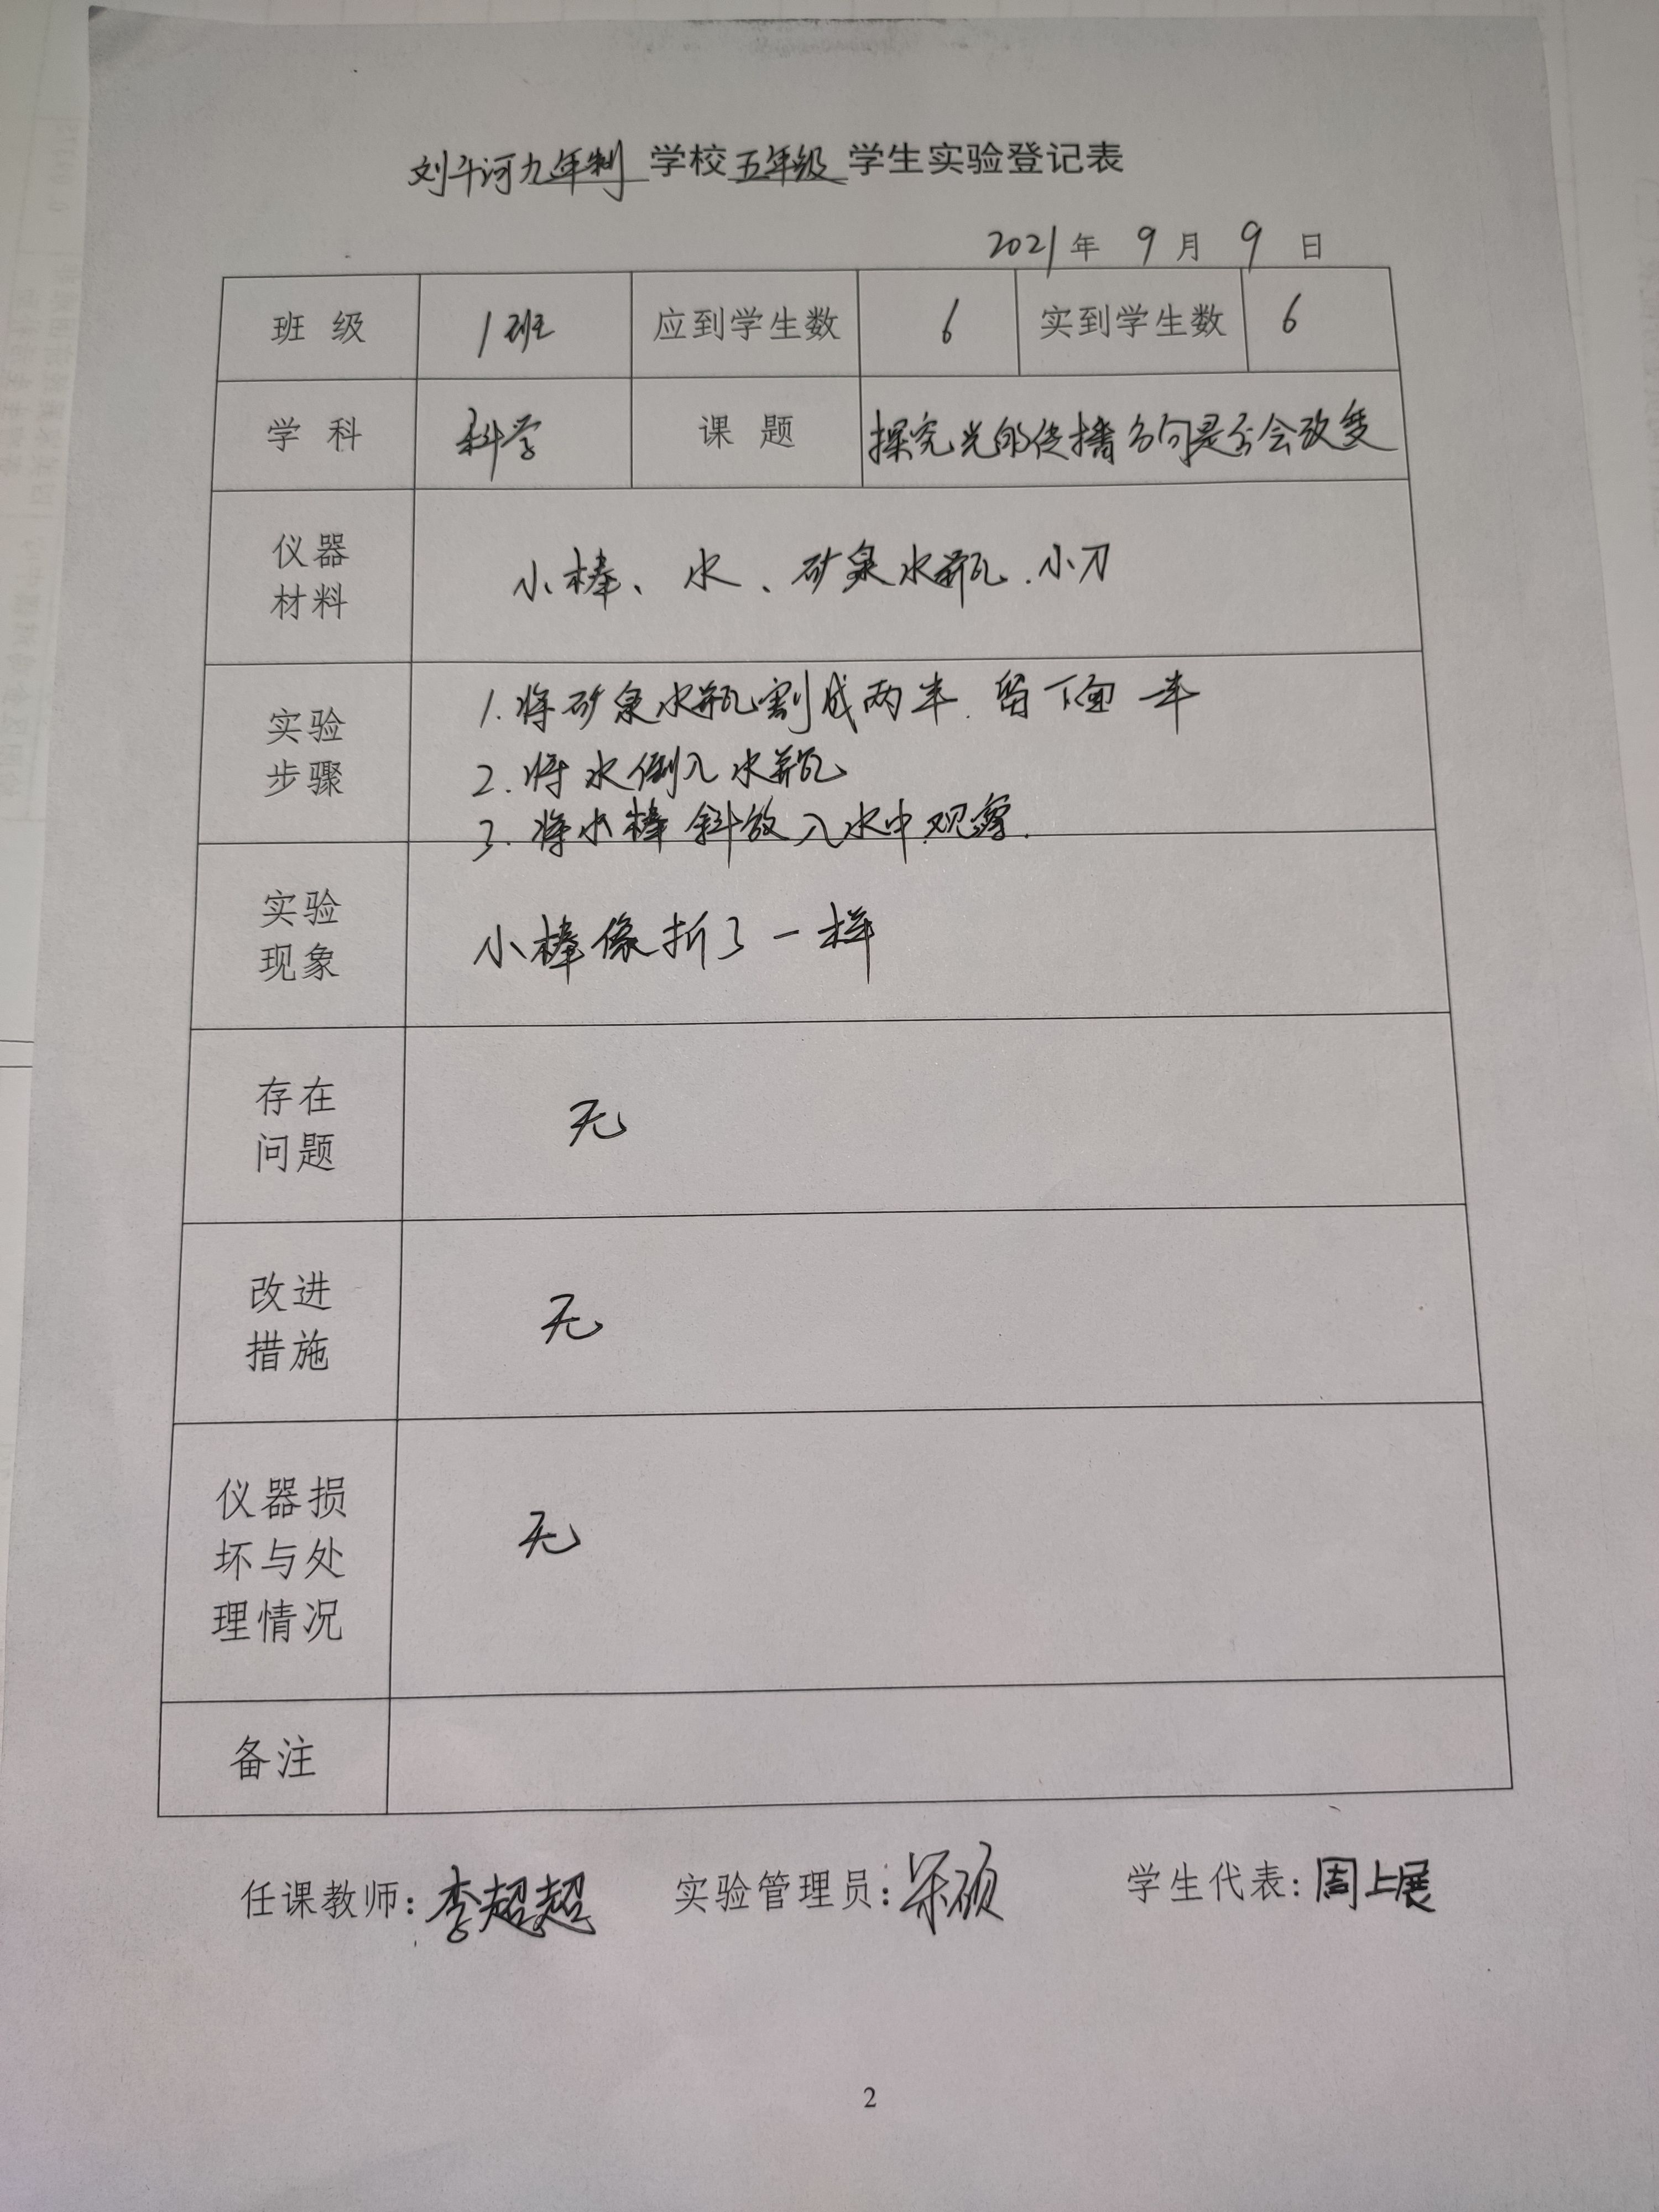 刘斗河九年制 学校 五年级 学生实验登记表
2021 年 9 月 9 日
班级 1班 应到学生数 6 实到学生数 6
学科 科学 课题 探究光的传播方向是否会改变
仪器
材料
小棒、水、矿泉水瓶.小刀
实验
步骤
1.将矿泉水瓶割成两半.留下面一半
2.将水倒入水瓶
3.将小棒斜放入水中.观察.
实验
现象
小棒像折了一样
存在
问题
无
改进
措施
无
仪器损
坏与处
理情况
无
备注
任课教师:李超超 实验管理员:硕 学生代表:周上展
2